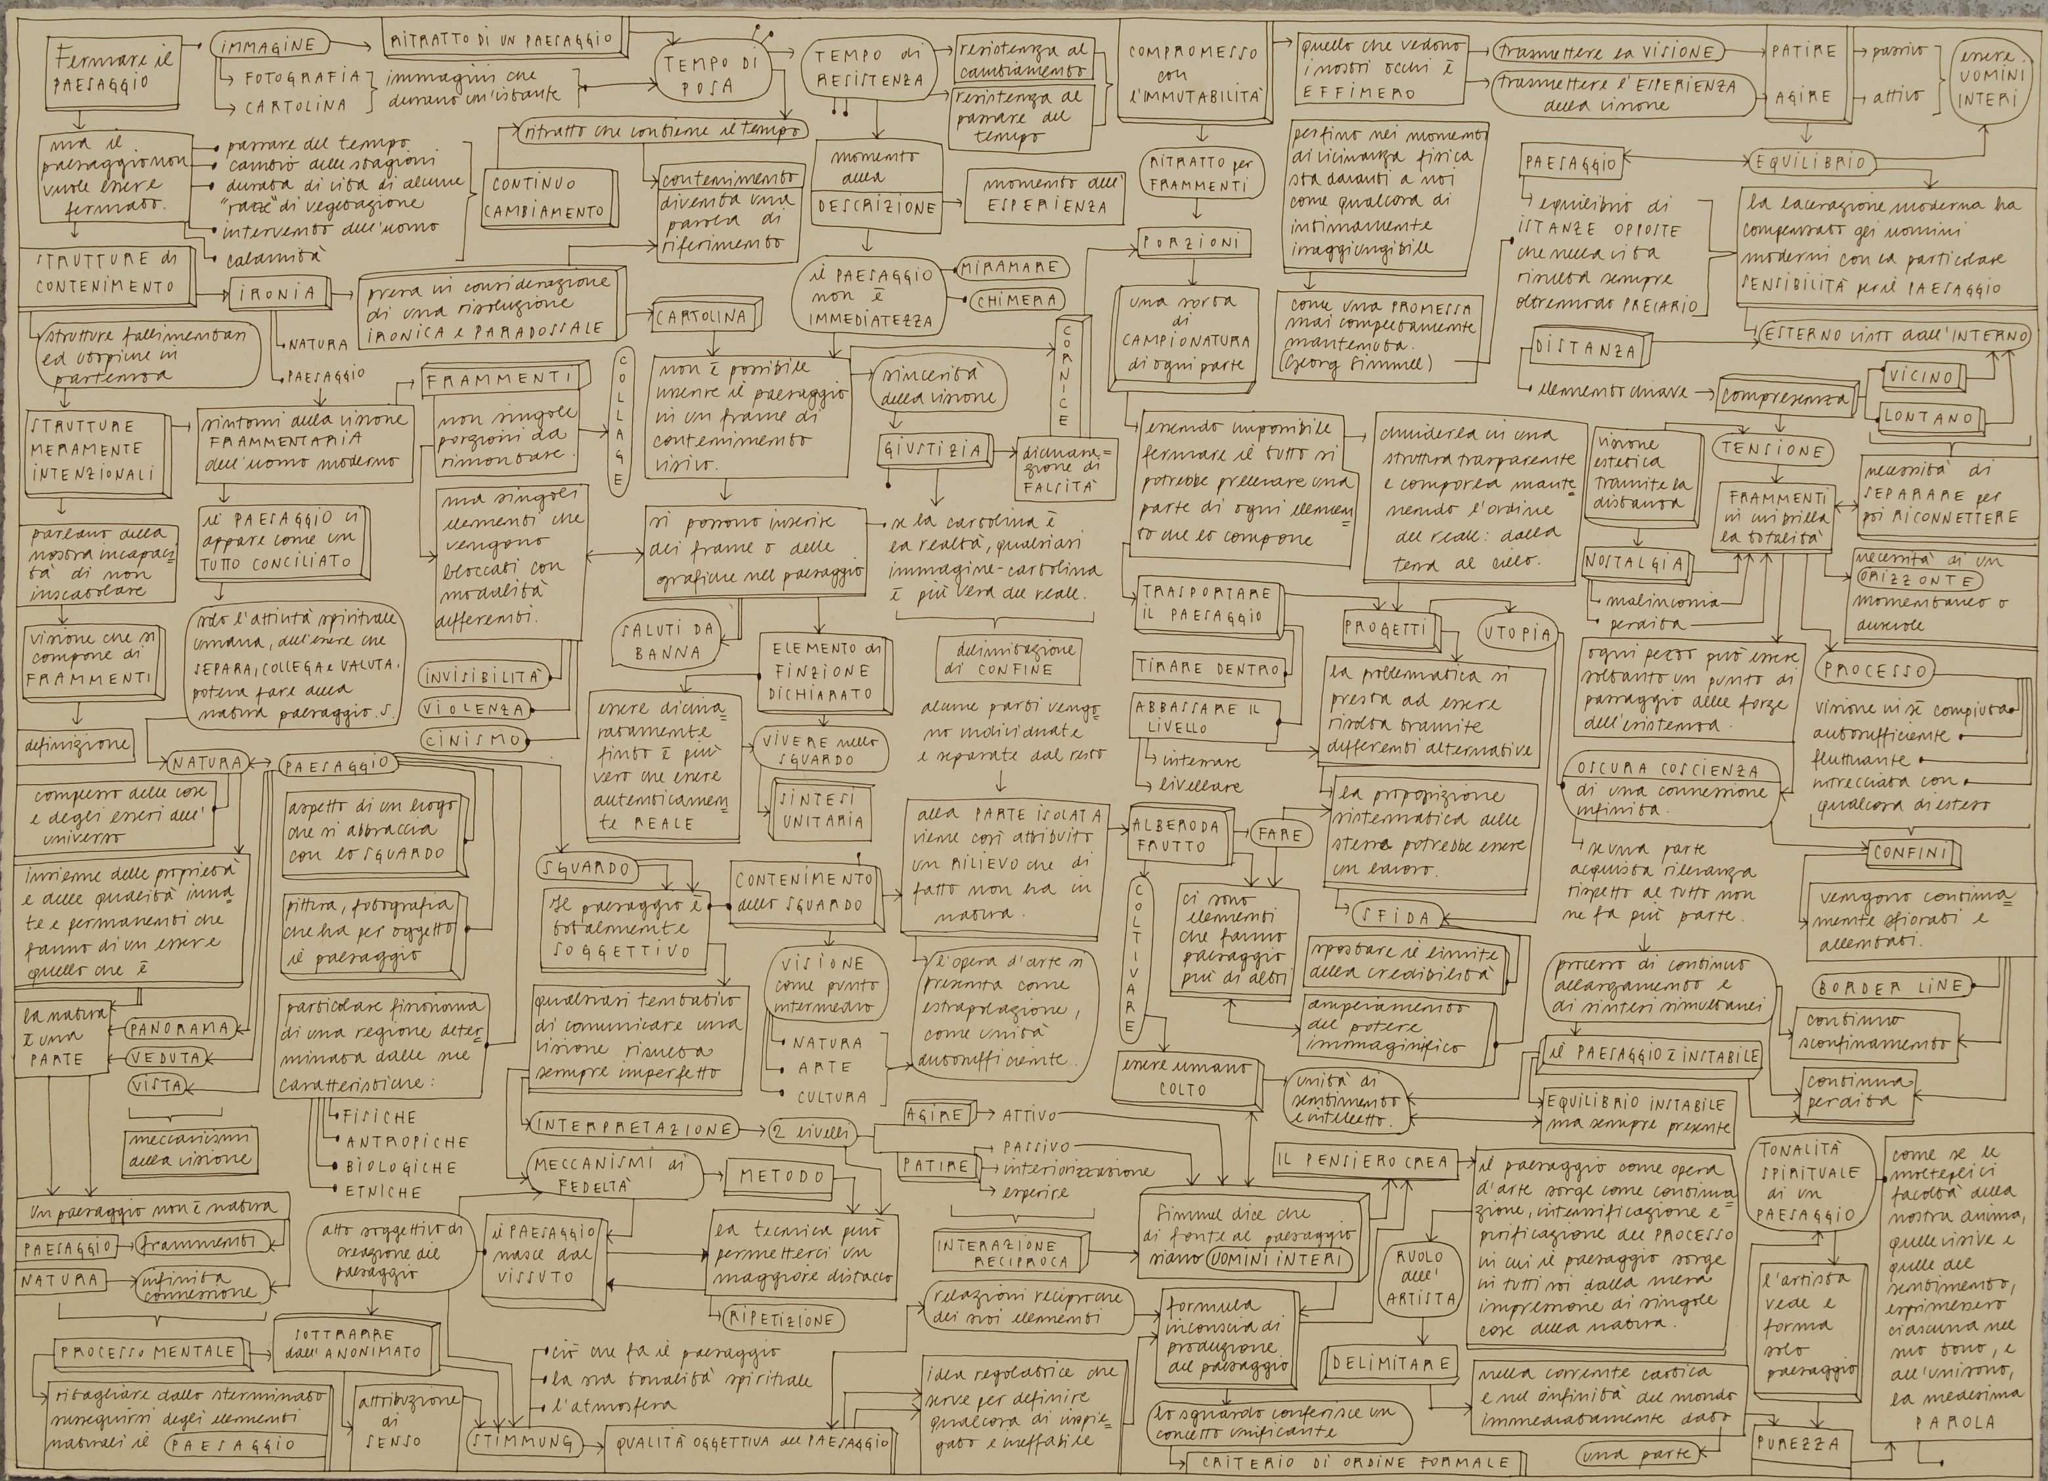 Fermare il
PAESAGGIO
IMMAGINE
FOTOGRAFIA
CARTOLINA
immagini che
durano un'istante
RITRATTO DI UN PAESAGGIO
TEMPO DI
POSA
TEMPO di
RESISTENZA
resistenza al
cambiamento
resistenza al
passare del
tempo
COMPROMESSO
con
l'IMMUTABILITÀ
quello che vedono
i nostri occhi è
EFFIMERO
trasmettere la VISIONE
trasmettere l'ESPERIENZA
della visione
PATIRE
AGIRE
passivo
attivo
essere
UOMINI
INTERI
ma il
paesaggio non
vuole essere
fermato.
passare del tempo
cambio delle stagioni
durata di vita di alcune
"razze" di vegetazione
intervento dell'uomo
calamità
CONTINUO
CAMBIAMENTO
ritratto che contiene il tempo
contenimento
diventa una
parola di
riferimento
momento
della
DESCRIZIONE
momento dell'
ESPERIENZA
RITRATTO per
FRAMMENTI
PORZIONI
perfino nei momenti
di vicinanza fisica
sta davanti a noi
come qualcosa di
intimamente
irraggiungibile
PAESAGGIO
EQUILIBRIO
equilibrio di
ISTANZE OPPOSTE
che nella vita
risulta sempre
oltremodo PRECARIO
la lacerazione moderna ha
compensato gli uomini
moderni con la particolare
SENSIBILITÀ per il PAESAGGIO
STRUTTURE di
CONTENIMENTO
IRONIA
NATURA
PAESAGGIO
presa in considerazione
di una risoluzione
IRONICA e PARADOSSALE
CARTOLINA
il PAESAGGIO
non è
IMMEDIATEZZA
MIRAMARE
CHIMERA
CORNICE
una sorta
di
CAMPIONATURA
di ogni parte
come una PROMESSA
mai completamente
mantenuta.
(Georg Simmel)
DISTANZA
elemento chiave
ESTERNO visto dall'INTERNO
compresenza
VICINO
LONTANO
strutture fallimentari
ed utopiche in
partenza
STRUTTURE
MERAMENTE
INTENZIONALI
sintomi della visione
FRAMMENTARIA
dell'uomo moderno
FRAMMENTI
non singole
porzioni da
rimontare.
COLLAGE
non è possibile
inserire il paesaggio
in un frame di
contenimento
visivo.
sincerità
della visione
GIUSTIZIA
dichiara=
zione di
FALSITÀ
essendo impossibile
fermare il tutto si
potrebbe prelevare una
parte di ogni elemen=
to che lo compone
chiuderla in una
struttura trasparente
e comporla mante=
nendo l'ordine
del reale: dalla
terra al cielo.
visione
estetica
tramite la
distanza
TENSIONE
FRAMMENTI
in cui brilla
la totalità
necessità di
SEPARARE per
poi RICONNETTERE
parlano della
nostra incapaci=
tà di non
inscatolare
il PAESAGGIO ci
appare come un
TUTTO CONCILIATO
ma singoli
elementi che
vengono
bloccati con
modalità
differenti.
si possono inserire
dei frame o delle
grafiche nel paesaggio
se la cartolina è
la realtà, qualsiasi
immagine-cartolina
è più vera del reale.
NOSTALGIA
malinconia
perdita
necessità di un
ORIZZONTE
momentaneo o
durevole
visione che si
compone di
FRAMMENTI
solo l'attività spirituale
umana, dell'essere che
SEPARA, COLLEGA e VALUTA,
poteva fare della
natura paesaggio. S.
INVISIBILITÀ
VIOLENZA
CINISMO
SALUTI DA
BANNA
ELEMENTO di
FINZIONE
DICHIARATO
delimitazione
di CONFINE
TRASPORTARE
il PAESAGGIO
TIRARE DENTRO
ABBASSARE IL
LIVELLO
interrare
livellare
PROGETTI
UTOPIA
la problematica si
presta ad essere
risolta tramite
differenti alternative
ogni pezzo può essere
soltanto un punto di
passaggio delle forze
dell'esistenza.
PROCESSO
visione in sé compiuta
autosufficiente
fluttuante
intrecciata con
qualcosa di esteso
definizione
NATURA
PAESAGGIO
complesso delle cose
e degli esseri dell'
universo
aspetto di un luogo
che si abbraccia
con lo SGUARDO
essere dichia=
ratamente
finto è più
vero che essere
autenticamen=
te REALE
VIVERE nello
SGUARDO
SINTESI
UNITARIA
alcune parti vengo=
no individuate
e separate dal resto
alla PARTE ISOLATA
viene così attribuito
un RILIEVO che di
fatto non ha in
natura.
ALBERO DA
FRUTTO
FARE
la proposizione
sistematica delle
stessa potrebbe essere
un lavoro.
OSCURA COSCIENZA
di una connessione
infinita.
se una parte
acquista rilevanza
rispetto al tutto non
ne fa più parte.
CONFINI
vengono continua=
mente sfiorati e
allentati.
insieme delle proprietà
e delle qualità inna=
te e permanenti che
fanno di un essere
quello che è
pittura, fotografia
che ha per oggetto
il paesaggio
SGUARDO
Il paesaggio è
totalmente
SOGGETTIVO
CONTENIMENTO
dello SGUARDO
COLTIVARE
ci sono
elementi
che fanno
paesaggio
più di altri
SFIDA
spostare il limite
della credibilità
ampliamento
del potere
immaginifico
processo di continuo
allargamento e
di sintesi simultanei
BORDER LINE
continuo
sconfinamento
continua
perdita
la natura
è una
PARTE
PANORAMA
VEDUTA
VISTA
meccanismi
della visione
particolare fisionomia
di una regione deter=
minata dalle sue
caratteristiche:
FISICHE
ANTROPICHE
BIOLOGICHE
ETNICHE
qualsiasi tentativo
di comunicare una
visione risulta
sempre imperfetto
VISIONE
come punto
intermedio
NATURA
ARTE
CULTURA
l'opera d'arte si
presenta come
estrapolazione,
come unità
autosufficiente.
essere umano
COLTO
unità di
sentimento
e intelletto.
il PAESAGGIO è INSTABILE
EQUILIBRIO INSTABILE
ma sempre presente
INTERPRETAZIONE
2 livelli
AGIRE
ATTIVO
PATIRE
PASSIVO
interiorizzazione
esperire
MECCANISMI di
FEDELTÀ
METODO
IL PENSIERO CREA
il paesaggio come opera
d'arte sorge come continua=
zione, intensificazione e
purificazione del PROCESSO
in cui il paesaggio sorge
in tutti noi dalla mera
impressione di singole
cose della natura.
TONALITÀ
SPIRITUALE
di un
PAESAGGIO
come se le
molteplici
facoltà della
nostra anima,
quelle visive e
quelle del
sentimento,
esprimessero
ciascuna nel
suo tono, e
all'unisono,
la medesima
PAROLA
un paesaggio non è natura
PAESAGGIO
frammenti
NATURA
infinita
connessione
atto soggettivo di
creazione del
paesaggio
il PAESAGGIO
nasce dal
VISSUTO
la tecnica può
permetterci un
maggiore distacco
RIPETIZIONE
INTERAZIONE
RECIPROCA
Simmel dice che
di fonte al paesaggio
siamo UOMINI INTERI
RUOLO
dell'
ARTISTA
l'artista
vede e
forma
solo
paesaggio
relazioni reciproche
dei suoi elementi
formula
inconscia di
produzione
del paesaggio
DELIMITARE
PROCESSO MENTALE
SOTTRARRE
dall'ANONIMATO
ritagliare dallo sterminato
susseguirsi degli elementi
naturali il PAESAGGIO
attribuzione
di
SENSO
ciò che fa il paesaggio
la sua tonalità spirituale
l'atmosfera
STIMMUNG
QUALITÀ OGGETTIVA del PAESAGGIO
idea regolatrice che
serve per definire
qualcosa di inspie=
gato e ineffabile
lo sguardo conferisce un
concetto unificante
CRITERIO DI ORDINE FORMALE
nella corrente caotica
e nell'infinità del mondo
immediatamente dato
una parte
PUREZZA